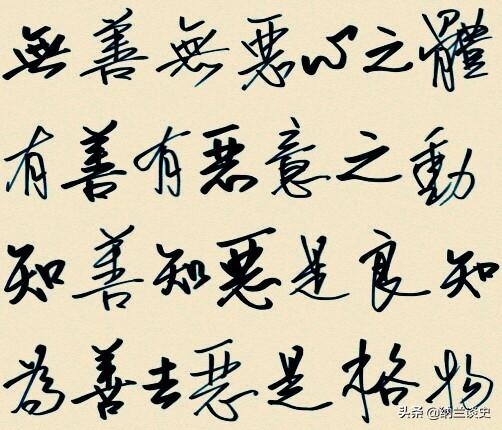 無善無惡心之體
有善有惡意之動
知善知惡是良知
為善去惡是格物
头条 @纳兰谈史